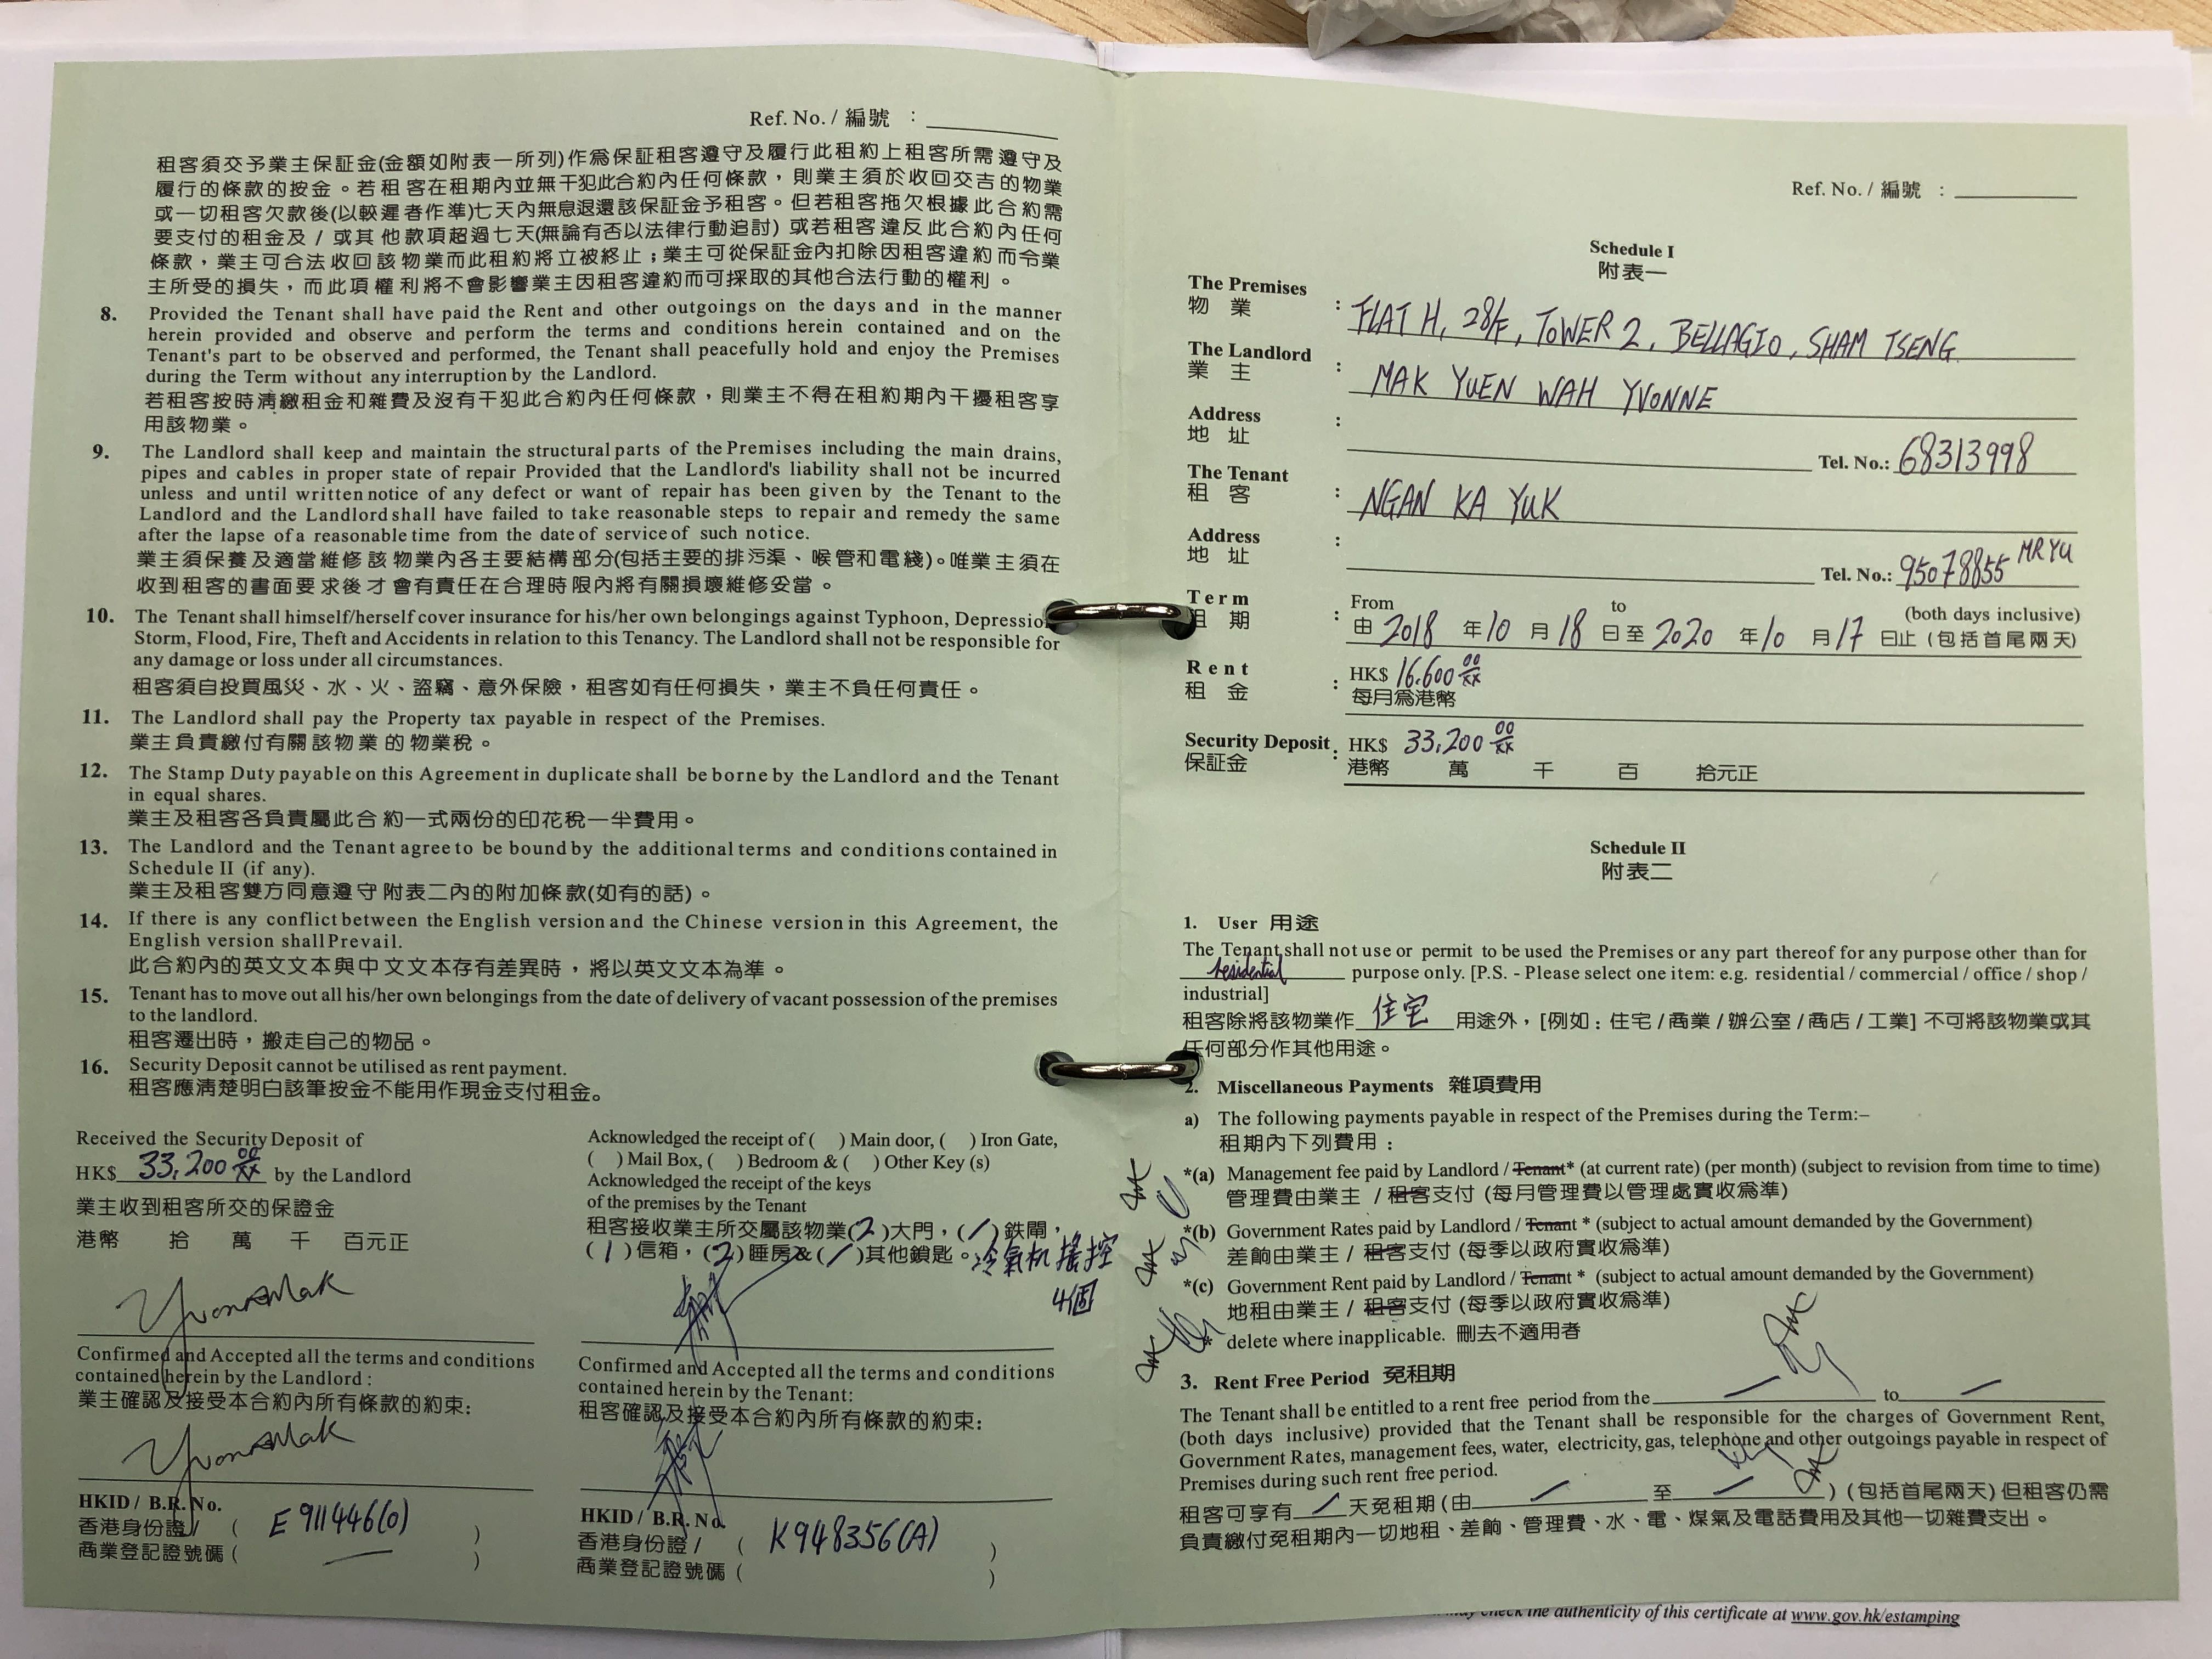 Ref. No. / 編號 :
租客須交予業主保証金(金額如附表一所列)作爲保証租客遵守及履行此租約上租客所需遵守及
履行的條款的按金。若租客在租期內並無干犯此合約內任何條款，則業主須於收回交吉的物業
或一切租客欠款後(以較遲者作準)七天內無息退還該保証金予租客。但若租客拖欠根據此合約需
要支付的租金及 / 或其他款項超過七天(無論有否以法律行動追討) 或若租客違反此合約內任何
條款，業主可合法收回該物業而此租約將立被終止；業主可從保証金內扣除因租客違約而令業
主所受的損失，而此項權利將不會影響業主因租客違約而可採取的其他合法行動的權利。
8. Provided the Tenant shall have paid the Rent and other outgoings on the days and in the manner
herein provided and observe and perform the terms and conditions herein contained and on the
Tenant's part to be observed and performed, the Tenant shall peacefully hold and enjoy the Premises
during the Term without any interruption by the Landlord.
若租客按時清繳租金和雜費及沒有干犯此合約內任何條款，則業主不得在租約期內干擾租客享
用該物業。
9. The Landlord shall keep and maintain the structural parts of the Premises including the main drains,
pipes and cables in proper state of repair Provided that the Landlord's liability shall not be incurred
unless and until written notice of any defect or want of repair has been given by the Tenant to the
Landlord and the Landlord shall have failed to take reasonable steps to repair and remedy the same
after the lapse of a reasonable time from the date of service of such notice.
業主須保養及適當維修該物業內各主要結構部分(包括主要的排污渠、喉管和電綫)。唯業主須在
收到租客的書面要求後才會有責任在合理時限內將有關損壞維修妥當。
10. The Tenant shall himself/herself cover insurance for his/her own belongings against Typhoon, Depressio
Storm, Flood, Fire, Theft and Accidents in relation to this Tenancy. The Landlord shall not be responsible for
any damage or loss under all circumstances.
租客須自投買風災、水、火、盜竊、意外保險，租客如有任何損失，業主不負任何責任。
11. The Landlord shall pay the Property tax payable in respect of the Premises.
業主負責繳付有關該物業的物業稅。
12. The Stamp Duty payable on this Agreement in duplicate shall be borne by the Landlord and the Tenant
in equal shares.
業主及租客各負責屬此合約一式兩份的印花稅一半費用。
13. The Landlord and the Tenant agree to be bound by the additional terms and conditions contained in
Schedule II (if any).
業主及租客雙方同意遵守附表二內的附加條款(如有的話)。
14. If there is any conflict between the English version and the Chinese version in this Agreement, the
English version shall Prevail.
此合約內的英文文本與中文文本存有差異時，將以英文文本為準。
15. Tenant has to move out all his/her own belongings from the date of delivery of vacant possession of the premises
to the landlord.
租客遷出時，搬走自己的物品。
16. Security Deposit cannot be utilised as rent payment.
租客應清楚明白該筆按金不能用作現金支付租金。
Received the Security Deposit of
HK$ 33,200 00/xx by the Landlord
業主收到租客所交的保證金
港幣 拾 萬 千 百元正
Yvonne Mak
Confirmed and Accepted all the terms and conditions
contained herein by the Landlord :
業主確認及接受本合約內所有條款的約束:
Yvonne Mak
HKID / B.R. No.
香港身份證 / ( E911446(0) )
商業登記證號碼 ( )
Acknowledged the receipt of ( ) Main door, ( ) Iron Gate,
( ) Mail Box, ( ) Bedroom & ( ) Other Key (s)
Acknowledged the receipt of the keys
of the premises by the Tenant
租客接收業主所交屬該物業(2)大門，(/)鉄閘，
(1)信箱，(2)睡房&(/)其他鎖匙。冷氣机搖控
4個
Confirmed and Accepted all the terms and conditions
contained herein by the Tenant:
租客確認及接受本合約內所有條款的約束:
HKID / B.R. No.
香港身份證 / ( K948356(A) )
商業登記證號碼 ( )
Ref. No. / 編號 :
Schedule I
附表一
The Premises
物 業 : FLAT H, 28/F, TOWER 2, BELLAGIO, SHAM TSENG
The Landlord
業 主 : MAK YUEN WAH YVONNE
Address
地 址 :
Tel. No.: 68313998
The Tenant
租 客 : NGAN KA YUK
Address
地 址 :
Tel. No.: 95078855 MR YU
Term From to (both days inclusive)
租 期 : 由 2018 年 10 月 18 日至 2020 年 10 月 17 日止 (包括首尾兩天)
Rent HK$ 16,600 00/xx
租 金 : 每月爲港幣
Security Deposit : HK$ 33,200 00/xx
保証金 港幣 萬 千 百 拾元正
Schedule II
附表二
1. User 用途
The Tenant shall not use or permit to be used the Premises or any part thereof for any purpose other than for
residential purpose only. [P.S. - Please select one item: e.g. residential / commercial / office / shop /
industrial]
租客除將該物業作 住宅 用途外，[例如 : 住宅 / 商業 / 辦公室 / 商店 / 工業] 不可將該物業或其
任何部分作其他用途。
2. Miscellaneous Payments 雜項費用
a) The following payments payable in respect of the Premises during the Term:–
租期內下列費用 :
*(a) Management fee paid by Landlord / Tenant* (at current rate) (per month) (subject to revision from time to time)
管理費由業主 / 租客支付 (每月管理費以管理處實收爲準)
*(b) Government Rates paid by Landlord / Tenant * (subject to actual amount demanded by the Government)
差餉由業主 / 租客支付 (每季以政府實收爲準)
*(c) Government Rent paid by Landlord / Tenant * (subject to actual amount demanded by the Government)
地租由業主 / 租客支付 (每季以政府實收爲準)
* delete where inapplicable. 刪去不適用者
3. Rent Free Period 免租期
The Tenant shall be entitled to a rent free period from the / to /
(both days inclusive) provided that the Tenant shall be responsible for the charges of Government Rent,
Government Rates, management fees, water, electricity, gas, telephone and other outgoings payable in respect of
Premises during such rent free period.
租客可享有 / 天免租期 (由 / 至 / ) (包括首尾兩天) 但租客仍需
負責繳付免租期內一切地租、差餉、管理費、水、電、煤氣及電話費用及其他一切雜費支出。
may check the authenticity of this certificate at www.gov.hk/estamping